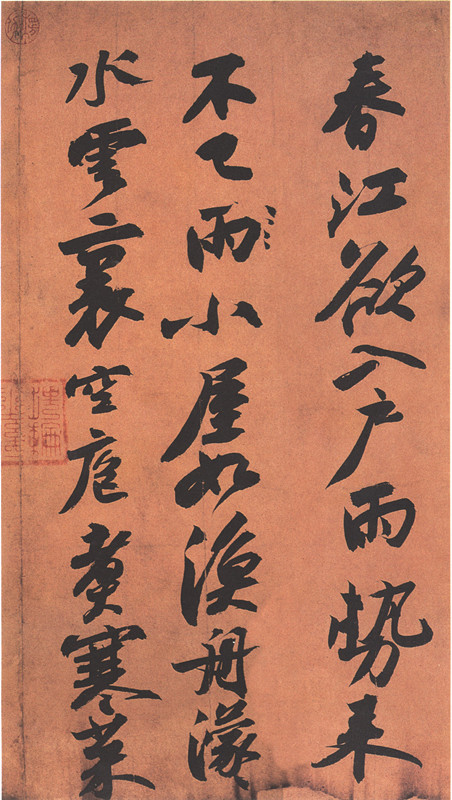 春江欲入户雨勢来
不已雨小屋如漁舟濛〻
水雲裏空庖煮寒菜